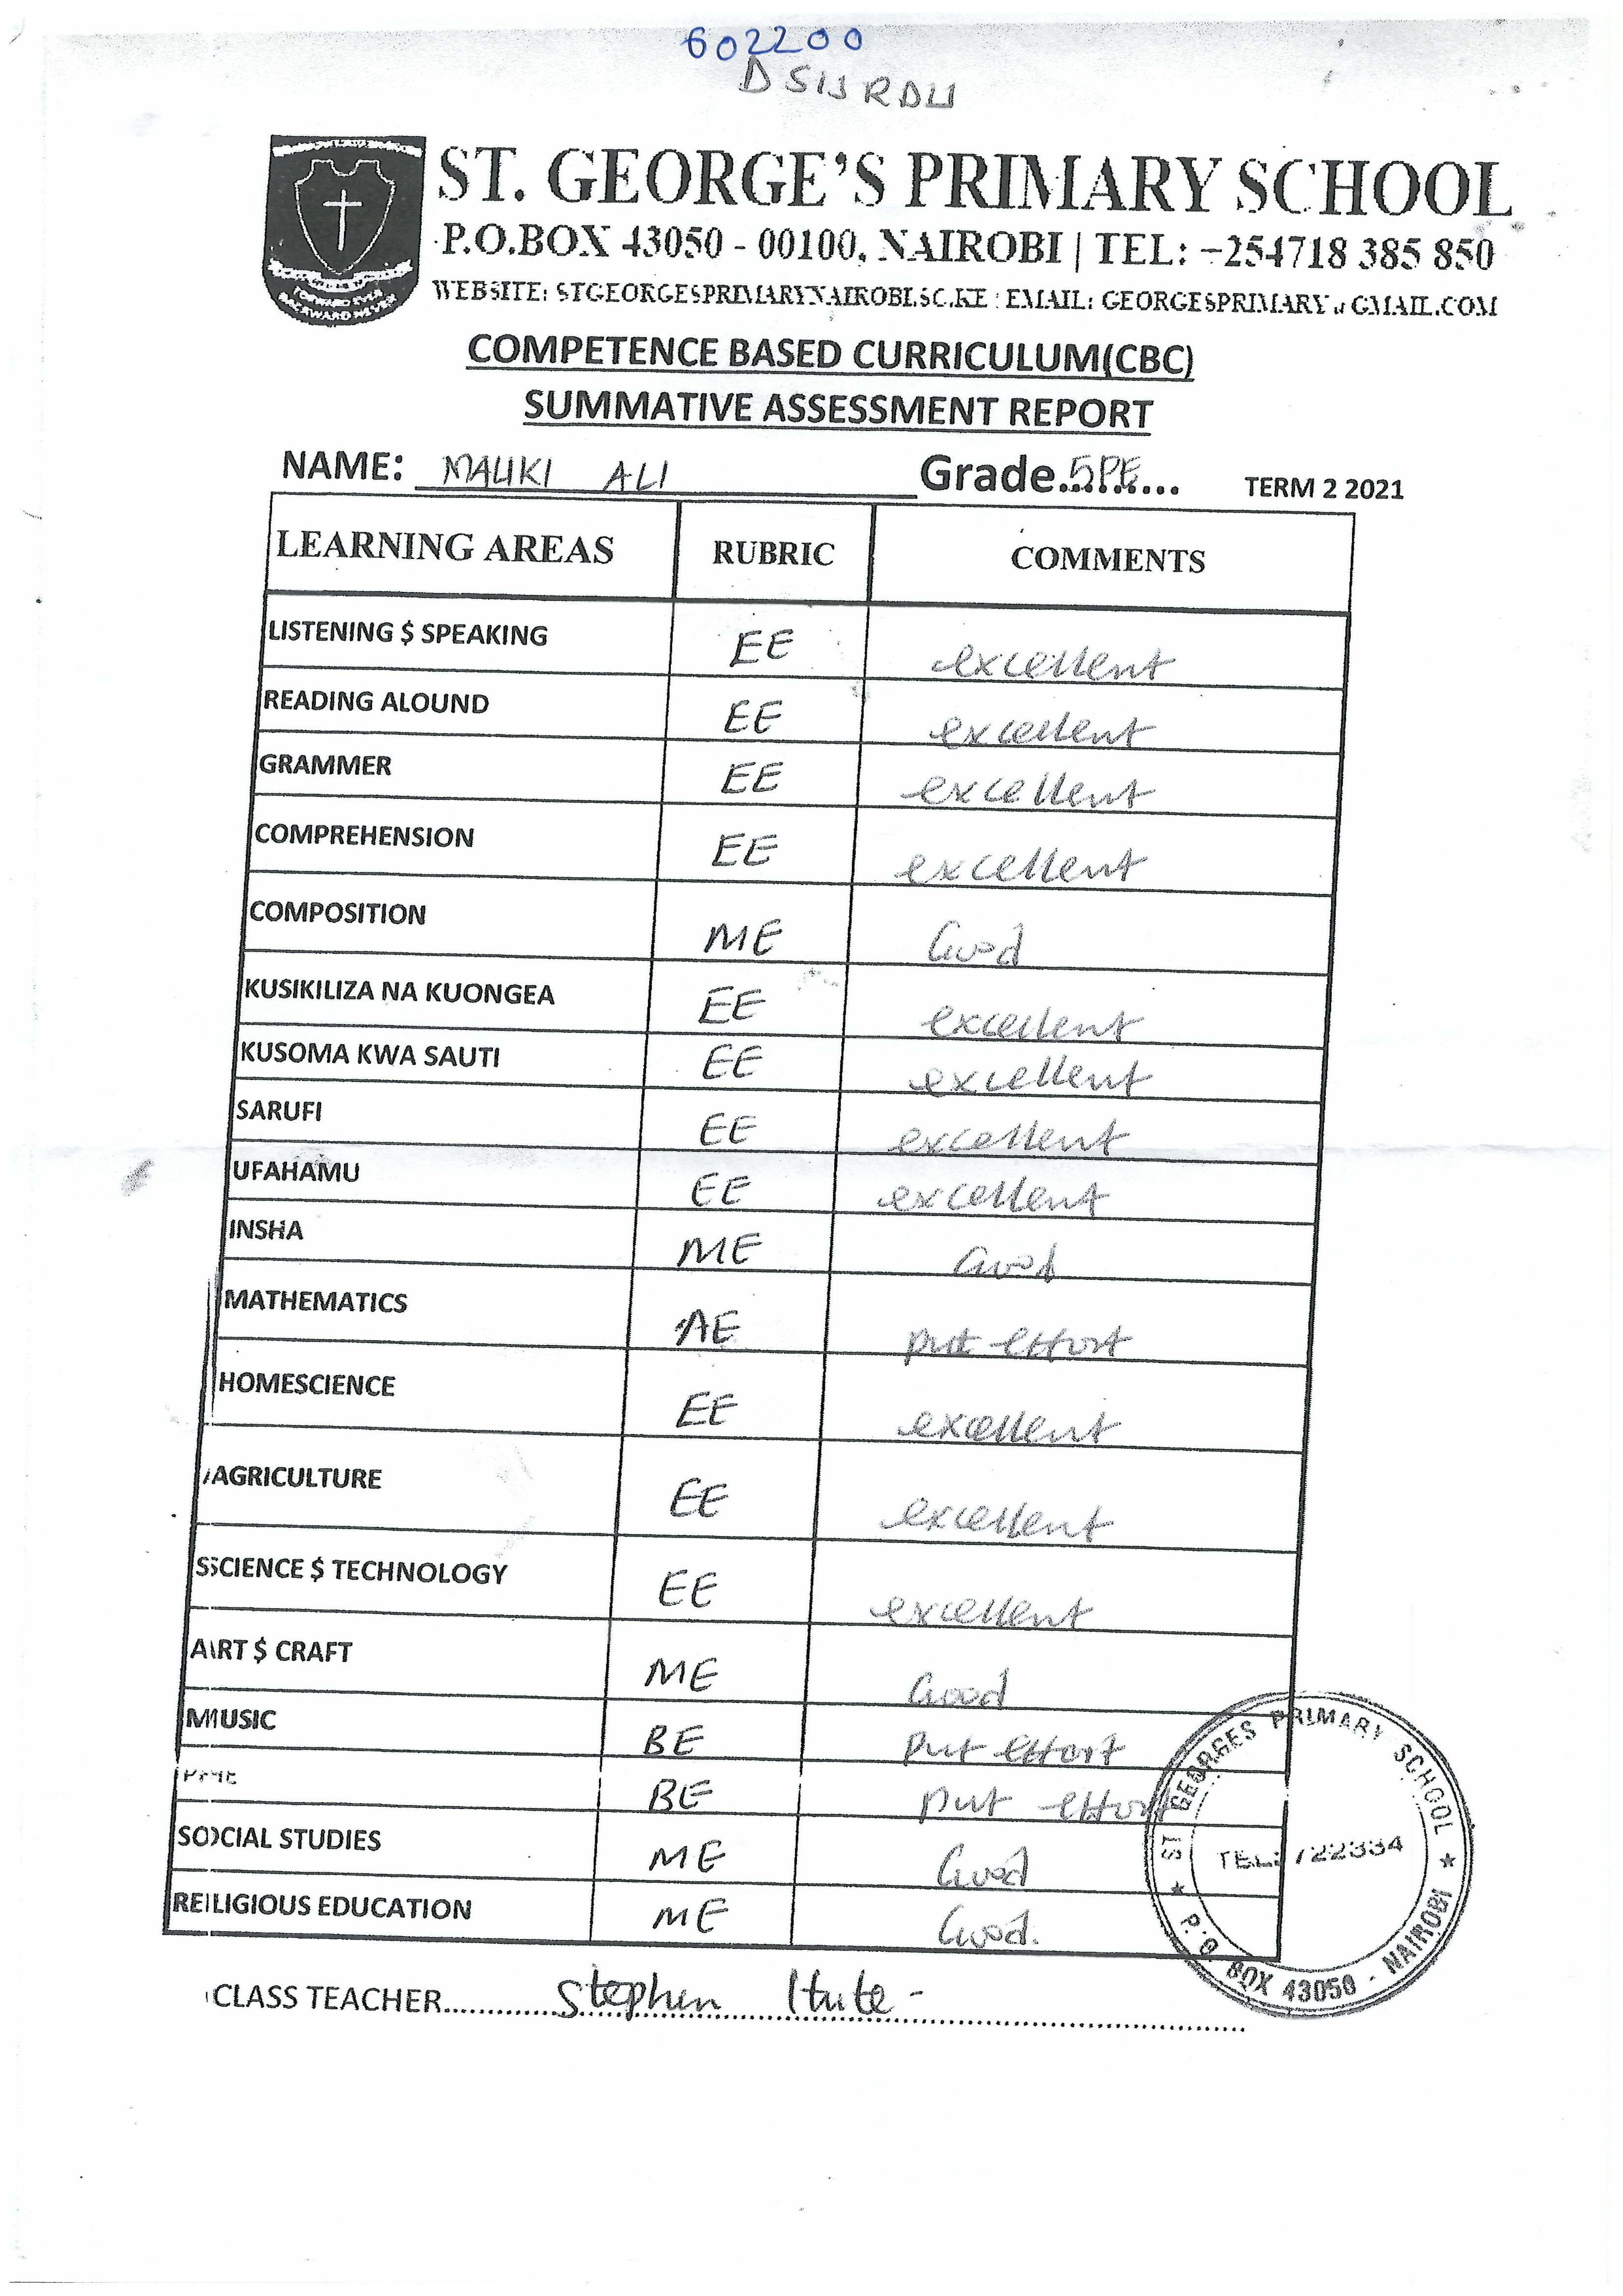 602200
ST. GEORGE'S PRIMARY SCHOOL
P.O.BOX 43050 - 00100, NAIROBI | TEL: +254718 385 850
WEBSITE: STGEORGESPRIMARYNAIROBI.SC.KE | EMAIL: GEORGESPRIMARY@GMAIL.COM
FORWARD EVER
BACKWARD NEVER
COMPETENCE BASED CURRICULUM(CBC)
SUMMATIVE ASSESSMENT REPORT
NAME: MAUKI ALI Grade 5PE TERM 2 2021
LEARNING AREAS RUBRIC COMMENTS
LISTENING $ SPEAKING EE excellent
READING ALOUND EE excellent
GRAMMER EE excellent
COMPREHENSION EE excellent
COMPOSITION ME Good
KUSIKILIZA NA KUONGEA EE excellent
KUSOMA KWA SAUTI EE excellent
SARUFI EE excellent
UFAHAMU EE excellent
INSHA ME Good
MATHEMATICS AE put effort
HOMESCIENCE EE excellent
AGRICULTURE EE excellent
SCIENCE $ TECHNOLOGY EE excellent
ART $ CRAFT ME Good
MUSIC BE Put effort
BE put effort
SOCIAL STUDIES ME Good
RELIGIOUS EDUCATION ME Good.
CLASS TEACHER Stephen
ST GEORGES PRIMARY SCHOOL
TEL: 722334
P.O. BOX 43050 - NAIROBI